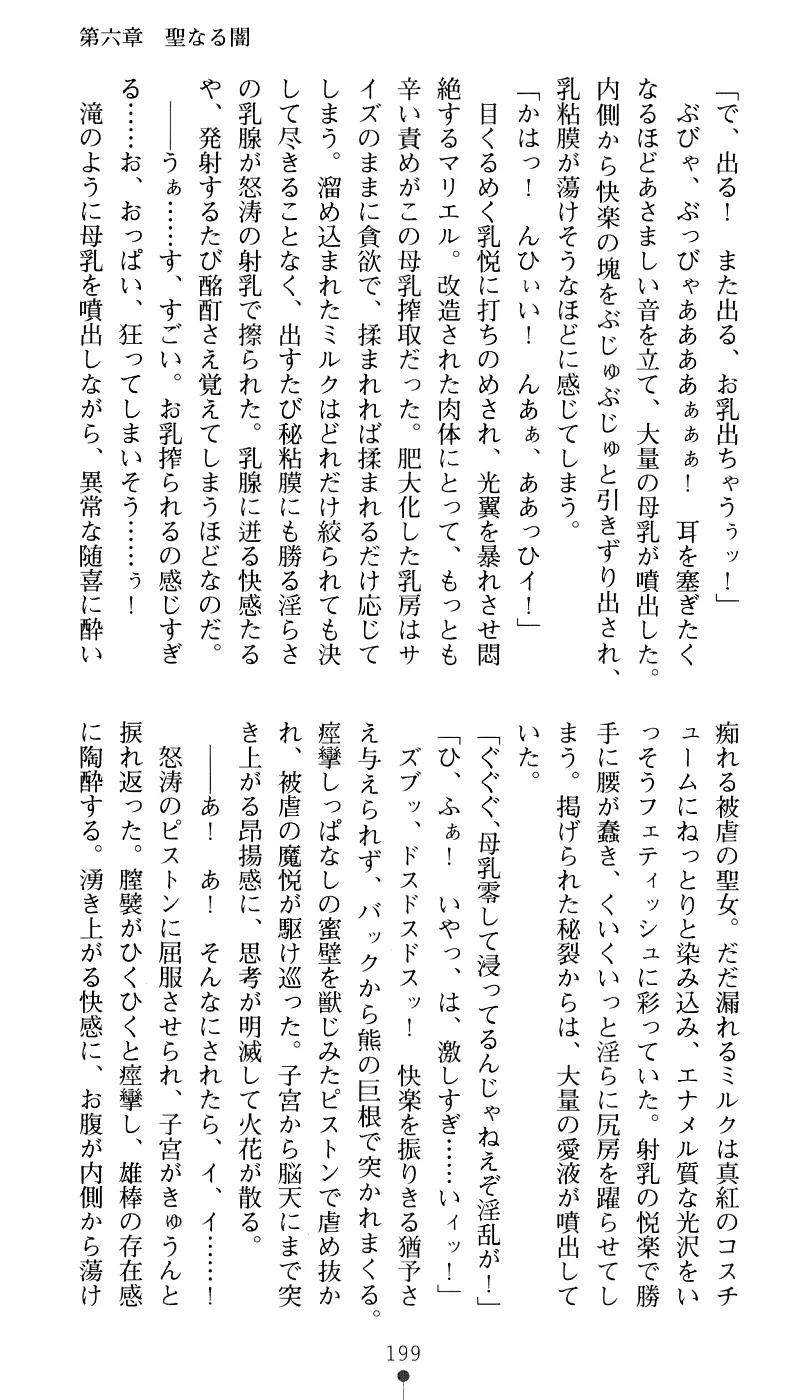 第六章　聖なる闇
「で、出る！　また出る、お乳出ちゃうぅッ！」
　ぶびゃ、ぶっびゃああああぁぁぁ！　耳を塞ぎたく
なるほどあさましい音を立て、大量の母乳が噴出した。
内側から快楽の塊をぶじゅぶじゅと引きずり出され、
乳粘膜が蕩けそうなほどに感じてしまう。
「かはっ！　んひぃい！　んあぁ、ああっひイ！」
　目くるめく乳悦に打ちのめされ、光翼を暴れさせ悶
絶するマリエル。改造された肉体にとって、もっとも
辛い責めがこの母乳搾取だった。肥大化した乳房はサ
イズのままに貪欲で、揉まれれば揉まれるだけ応じて
しまう。溜め込まれたミルクはどれだけ絞られても決
して尽きることなく、出すたび秘粘膜にも勝る淫らさ
の乳腺が怒涛の射乳で擦られた。乳腺に迸る快感たる
や、発射するたび酩酊さえ覚えてしまうほどなのだ。
　――うぁ……す、すごい。お乳搾られるの感じすぎ
る……お、おっぱい、狂ってしまいそう……ぅ！
　滝のように母乳を噴出しながら、異常な随喜に酔い
痴れる被虐の聖女。だだ漏れるミルクは真紅のコスチ
ュームにねっとりと染み込み、エナメル質な光沢をい
っそうフェティッシュに彩っていた。射乳の悦楽で勝
手に腰が蠢き、くいくいっと淫らに尻房を躍らせてし
まう。掲げられた秘裂からは、大量の愛液が噴出して
いた。
「ぐぐぐ、母乳零して浸ってるんじゃねえぞ淫乱が！」
「ひ、ふぁ！　いやっ、は、激しすぎ……いィッ！」
　ズブッ、ドスドスドスッ！　快楽を振りきる猶予さ
え与えられず、バックから熊の巨根で突かれまくる。
痙攣しっぱなしの蜜壁を獣じみたピストンで虐め抜か
れ、被虐の魔悦が駆け巡った。子宮から脳天にまで突
き上がる昂揚感に、思考が明滅して火花が散る。
　――あ！　あ！　そんなにされたら、イ、イ……！
　怒涛のピストンに屈服させられ、子宮がきゅうんと
捩れ返った。膣襞がひくひくと痙攣し、雄棒の存在感
に陶酔する。湧き上がる快感に、お腹が内側から蕩け
199